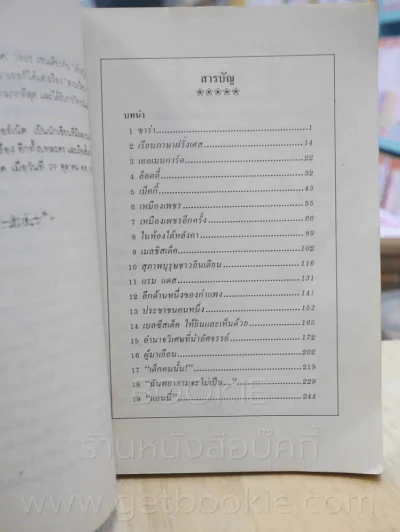 สารบัญ
บทนำ
1 ซาร่า 1
2 เรียนภาษาฝรั่งเศส 14
3 เออเมนการ์ด 22
4 ล็อตตี้ 32
5 เบ็คกี้ 43
6 เหมืองเพชร 55
7 เหมืองเพชรอีกครั้ง 66
8 ในห้องใต้หลังคา 89
9 เมลชิสเด็ค 102
10 สุภาพบุรุษชาวอินเดียน 116
11 แรม แดส 131
12 อีกด้านหนึ่งของกำแพง 141
13 ประชาชนคนหนึ่ง 152
14 เมลชีสเด็ค ได้ยินและเห็นด้วย 165
15 อำนาจวิเศษที่น่าอัศจรรย์ 172
16 ผู้มาเยือน 202
17 "เด็กคนนั้น!" 219
18 "ฉันพยายามจะไม่เป็น..." 229
19 "แอนนี่" 244
BOOKIE
ร้านหนังสือบุ๊คกี้
www.getbookie.com